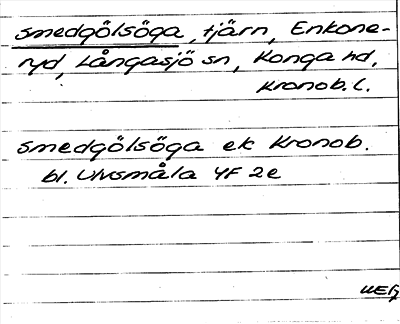 Smedgölsöga, tjärn, Enkone-
ryd, Långasjö sn, Konga hd,
Kronob. l.
Smedgölsöga ek Kronob.
bl. Ulvsmåla 4F 2e